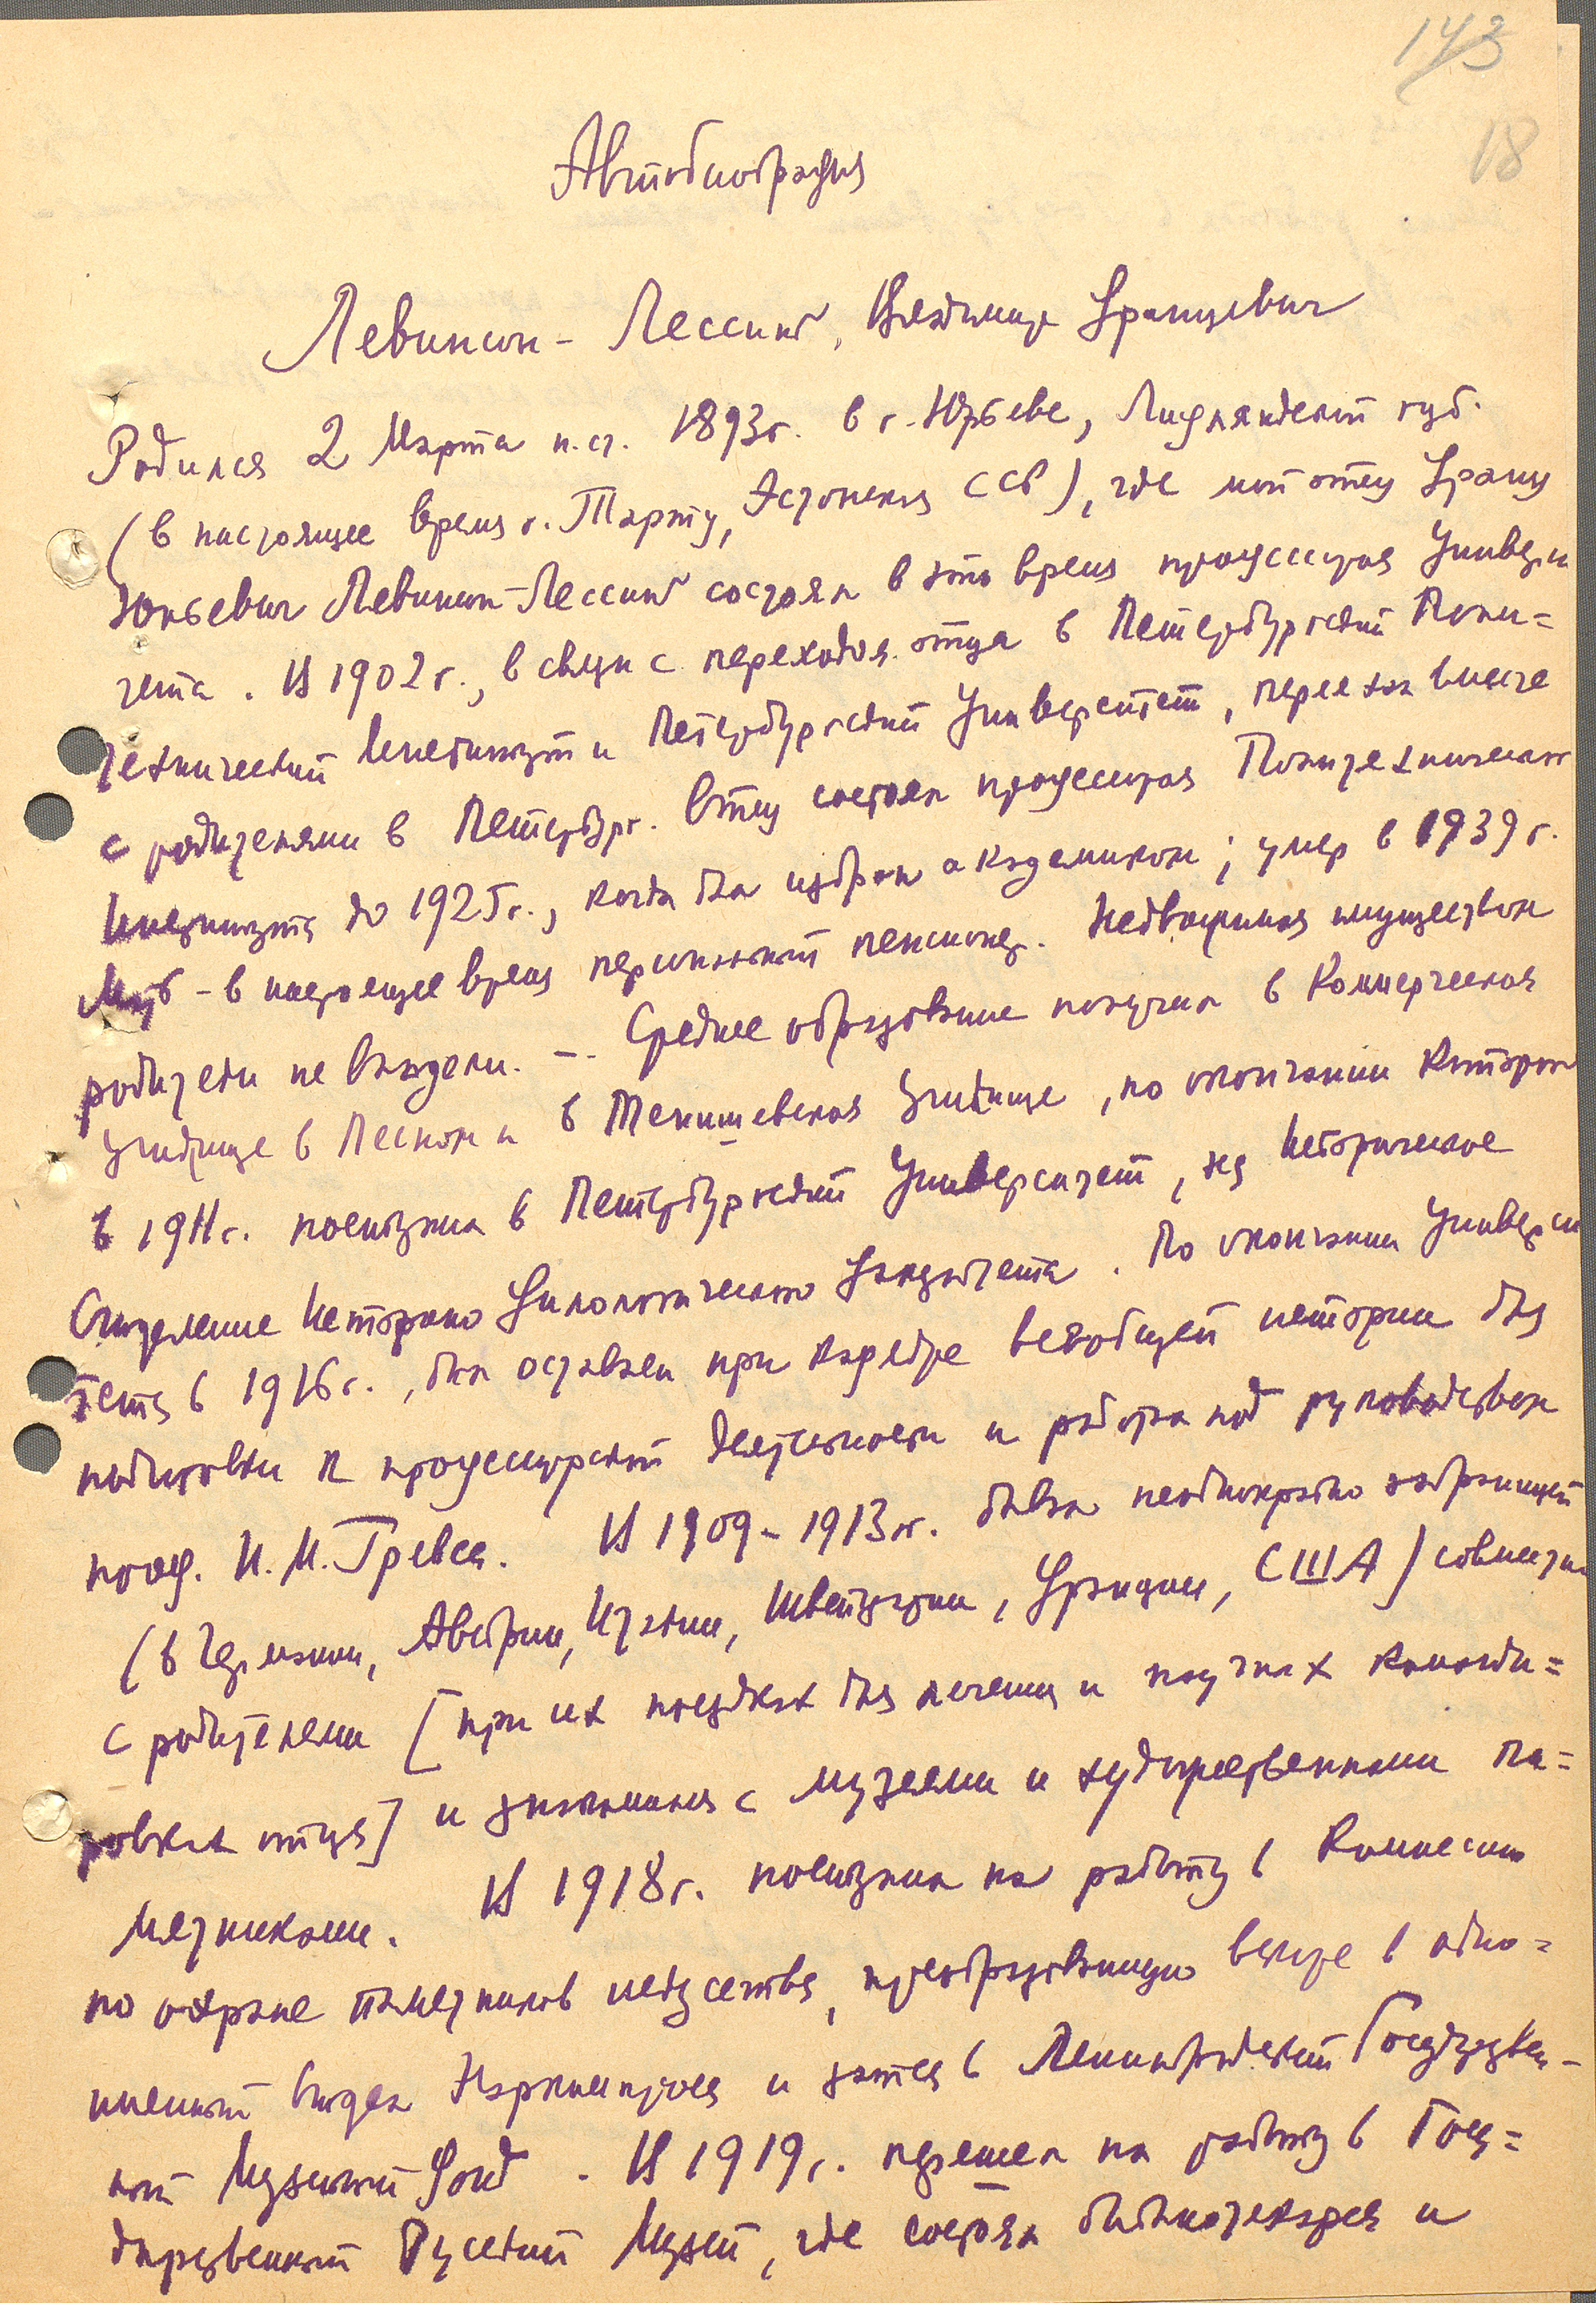 143
18
Автобиография
Левинсон-Лессинг, Владимир Францевич
Родился 2 Марта н.ст. 1893г. в г. Юрьеве, Лифляндской губ.
(в настоящее время г. Тарту, Эстонская ССР), где мой отец Франц
Юльевич Левинсон-Лессинг состоял в это время профессором Универси
тета. В 1902 г., в связи с переходом отца в Петербургский Поли=
технический Институт и Петербургский Университет, переехал вместе
с родителями в Петербург. Отец состоял профессором Политехнического
Института до 1925г., когда был избран академиком; умер в 1939 г.
Мать - в настоящее время персональный пенсионер. Недвижимым имуществом
родители не владели. — Среднее образование получил в Коммерческом
Училище в Лесном и в Тенишевском Училище, по окончании которого
в 1911г. поступил в Петербургский Университет, на Историческое
Отделение Историко Филологического Факультета. По окончании Универси
тета в 1916г., был оставлен при кафедре всеобщей истории для
подготовки к профессорской деятельности и работал под руководством
проф. И.М. Гревса. В 1909-1913 гг. бывал неоднократно заграницей
(в Германии, Австрии, Италии, Швейцарии, Франции, США) совместно
с родителями [при их поездках для лечения и научных команди=
ровках отца] и знакомился с музеями и художественными па=
мятниками. В 1918г. поступил на работу в Комиссию
по охране памятников искусства, преобразованную вскоре в одно=
именный Отдел Наркомпроса и затем в Ленинградский Государствен-
ный Музейный Фонд. В 1919г. перешел на работу в Госу=
дарственный Русский Музей, где состоял библиотекарем и